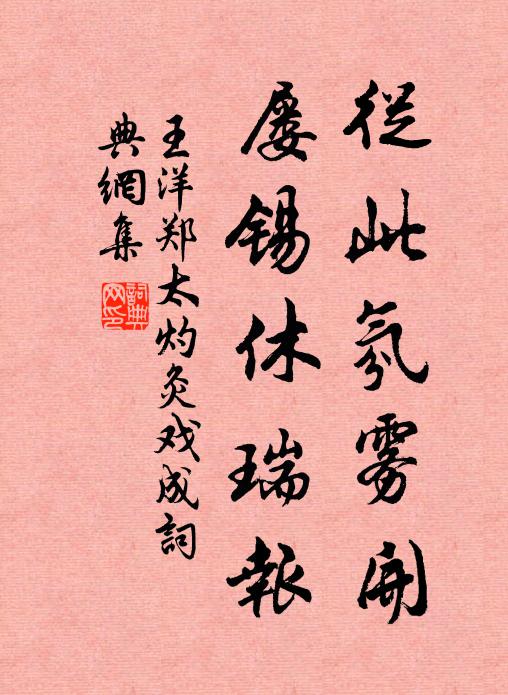 從此氛雾開
屡锡休瑞報
王洋郑太灼灸戏成詞
典網集
詞典网印